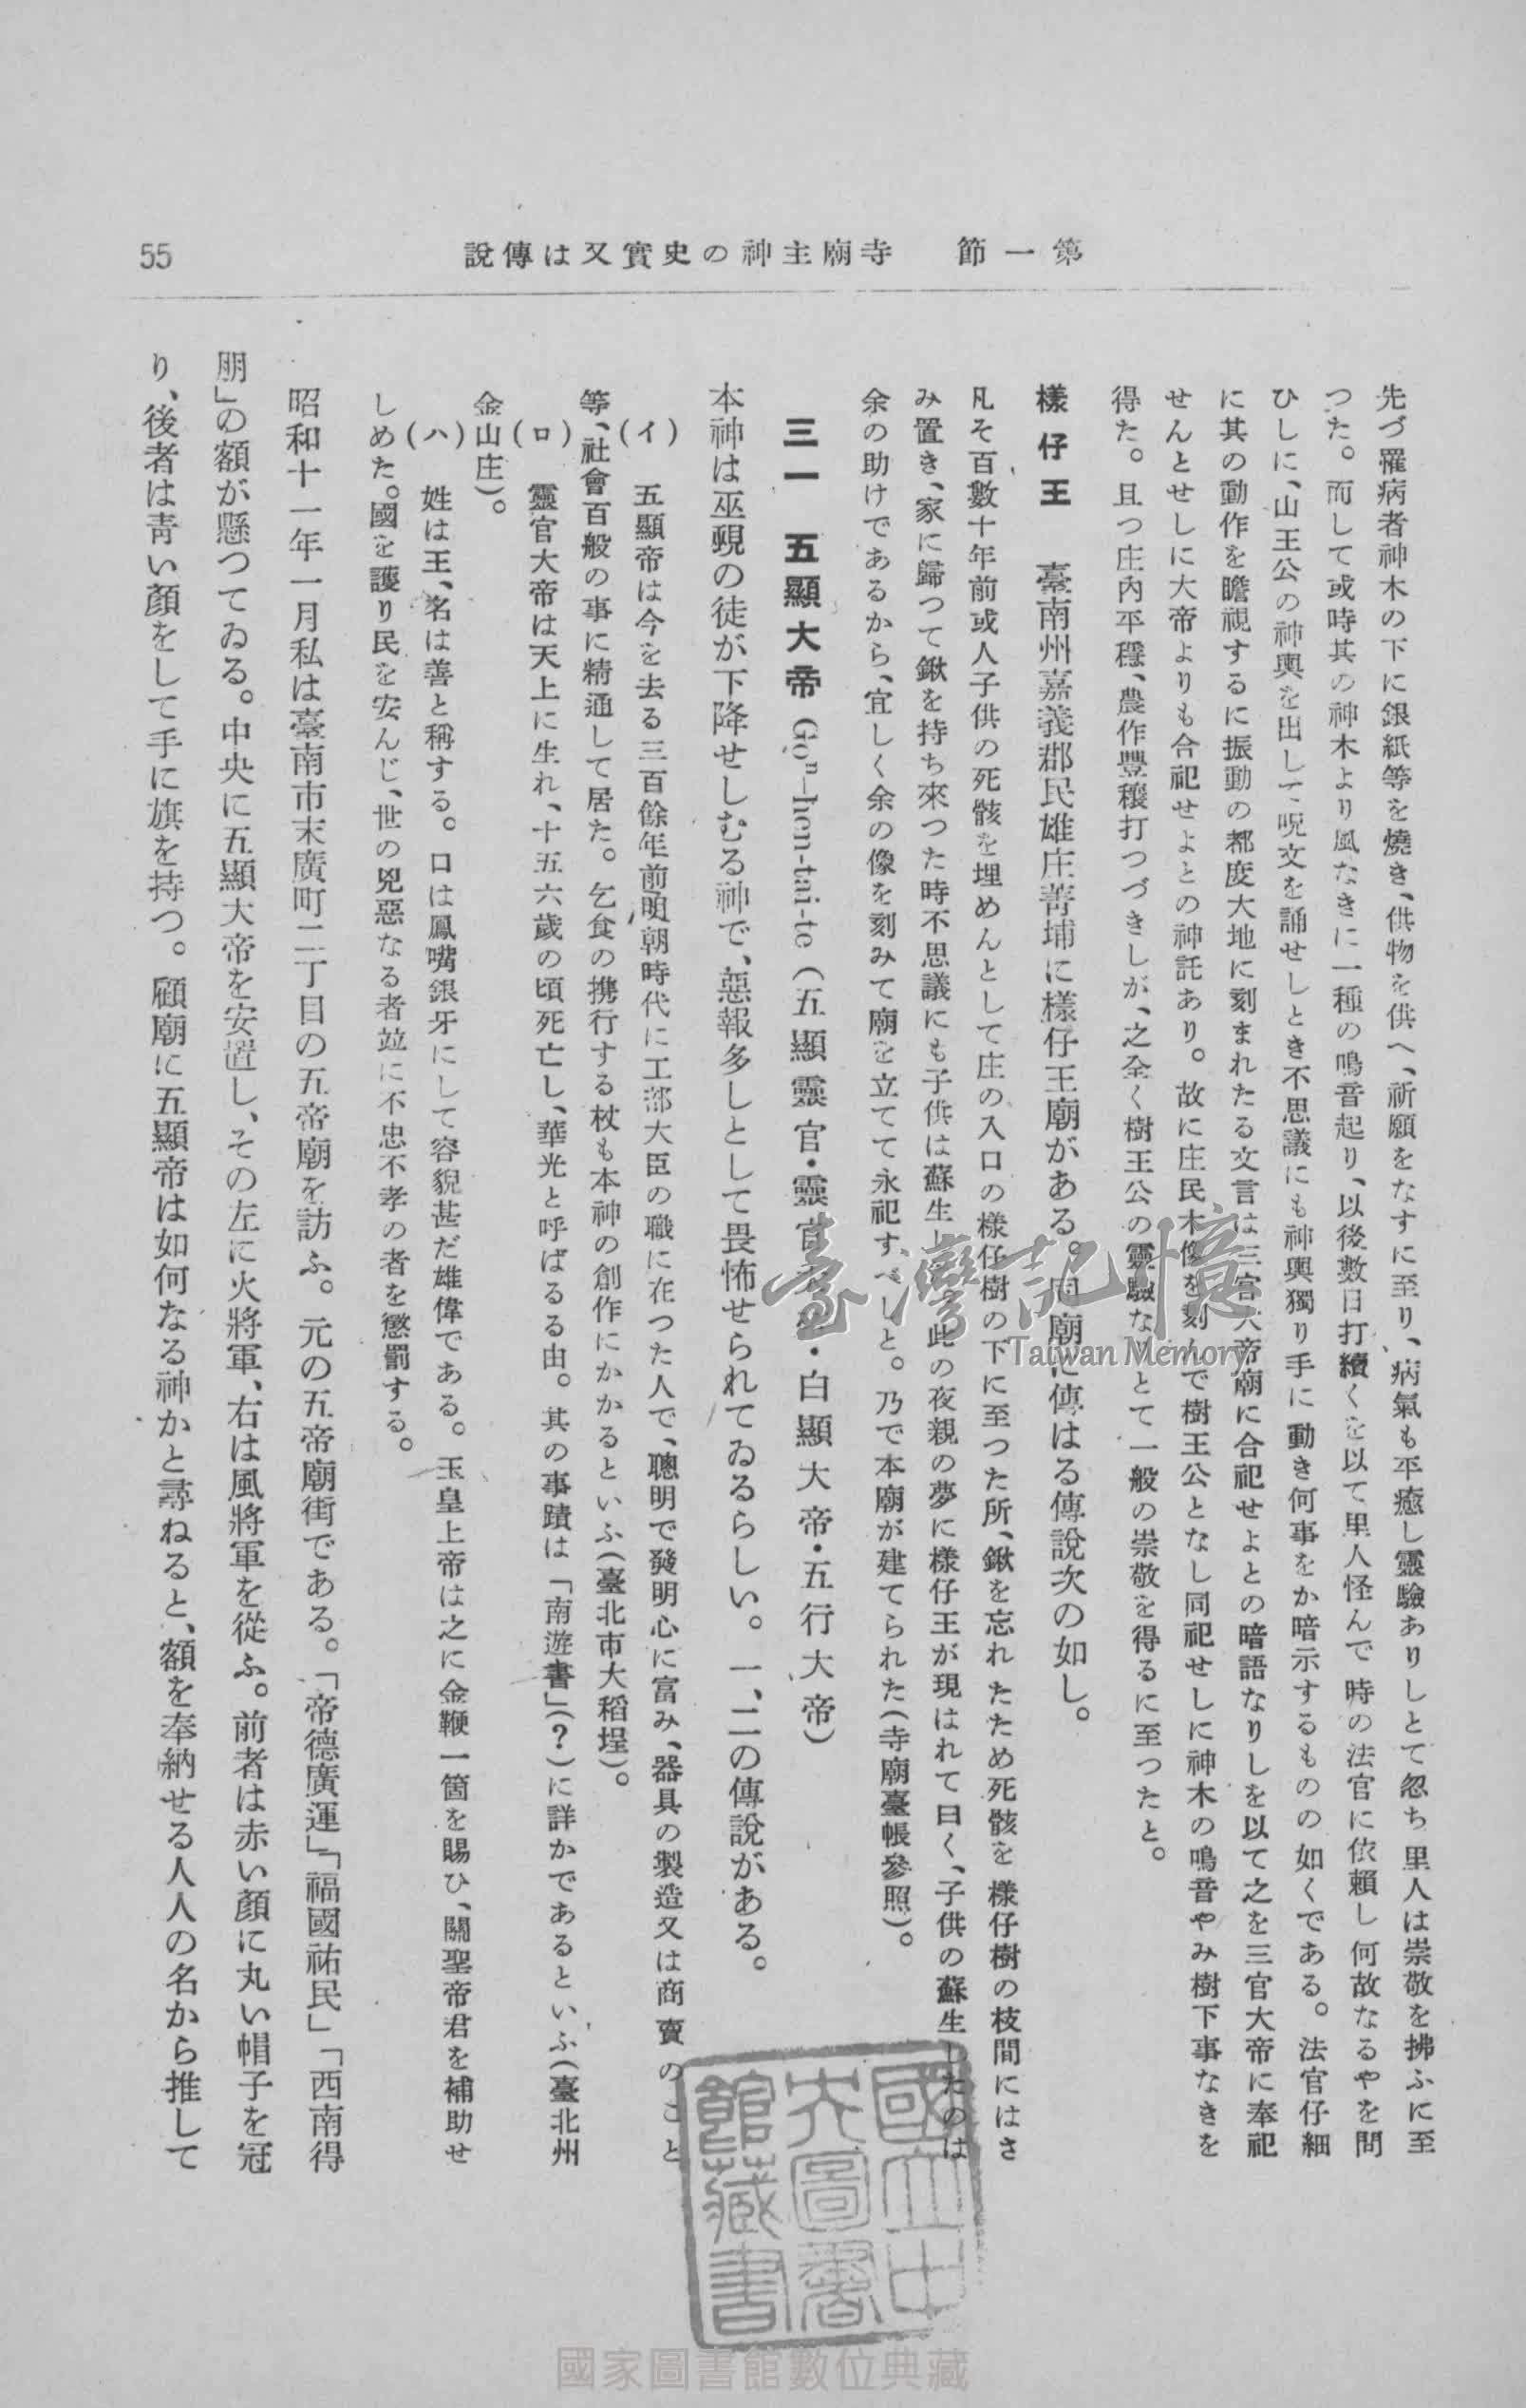 第一節　寺廟主神の史實又は傳說
55
先づ罹病者神木の下に銀紙等を燒き、供物を供へ、祈願をなすに至り、病氣も平癒し靈驗ありしとて忽ち里人は崇敬を拂ふに至
つた。而して或時其の神木より風なきに一種の鳴音起り、以後數日打續くを以て里人怪んで時の法官に依賴し何故なるやを問
ひしに、山王公の神輿を出して呪文を誦せしとき不思議にも神輿獨り手に動き何事をか暗示するものの如くである。法官仔細
に其の動作を瞻視するに振動の都度大地に刻まれたる文言は三官大帝廟に合祀せよとの暗語なりしを以て之を三官大帝に奉祀
せんとせしに大帝よりも合祀せよとの神託あり。故に庄民木像を刻んで樹王公となし同祀せしに神木の鳴音やみ樹下事なきを
得た。且つ庄內平穩、農作豐穰打つづきしが、之全く樹王公の靈驗なりとて一般の崇敬を得るに至つたと。
樣仔王　臺南州嘉義郡民雄庄菁埔に樣仔王廟がある。同廟に傳はる傳說次の如し。
凡そ百數十年前或人子供の死骸を埋めんとして庄の入口の樣仔樹の下に至つた所、鍬を忘れたため死骸を樣仔樹の枝間にはさ
み置き、家に歸つて鍬を持ち來つた時不思議にも子供は蘇生し 此の夜親の夢に樣仔王が現はれて曰く、子供の蘇生したのは
余の助けであるから、宜しく余の像を刻みて廟を立てて永祀すべしと。乃で本廟が建てられた(寺廟臺帳參照)。
三一　五顯大帝 Gọⁿ-hen-tai-te (五顯靈官・靈官大帝・白顯大帝・五行大帝)
本神は巫覡の徒が下降せしむる神で、惡報多しとして畏怖せられてゐるらしい。一、二の傳說がある。
(イ)　五顯帝は今を去る三百餘年前明朝時代に工部大臣の職に在つた人で、聰明で發明心に富み、器具の製造又は商賣のこと
等、社會百般の事に精通して居た。乞食の携行する杖も本神の創作にかかるといふ(臺北市大稻埕)。
(ロ)　靈官大帝は天上に生れ、十五六歲の頃死亡し、華光と呼ばるる由。其の事蹟は「南遊書」(?)に詳かであるといふ(臺北州
金山庄)。
(ハ)　姓は王、名は善と稱する。口は鳳嘴銀牙にして容貌甚だ雄偉である。玉皇上帝は之に金鞭一箇を賜ひ、關聖帝君を補助せ
しめた。國を護り民を安んじ、世の兇惡なる者竝に不忠不孝の者を懲罰する。
昭和十一年一月私は臺南市末廣町二丁目の五帝廟を訪ふ。元の五帝廟街である。「帝德廣運」「福國祐民」「西南得
朋」の額が懸つてゐる。中央に五顯大帝を安置し、その左に火將軍、右は風將軍を從ふ。前者は赤い顏に丸い帽子を冠
り、後者は靑い顏をして手に旗を持つ。顧廟に五顯帝は如何なる神かと尋ねると、額を奉納せる人人の名から推して
臺灣記憶
Taiwan Memory
國立中
央圖書
館藏書
國家圖書館數位典藏